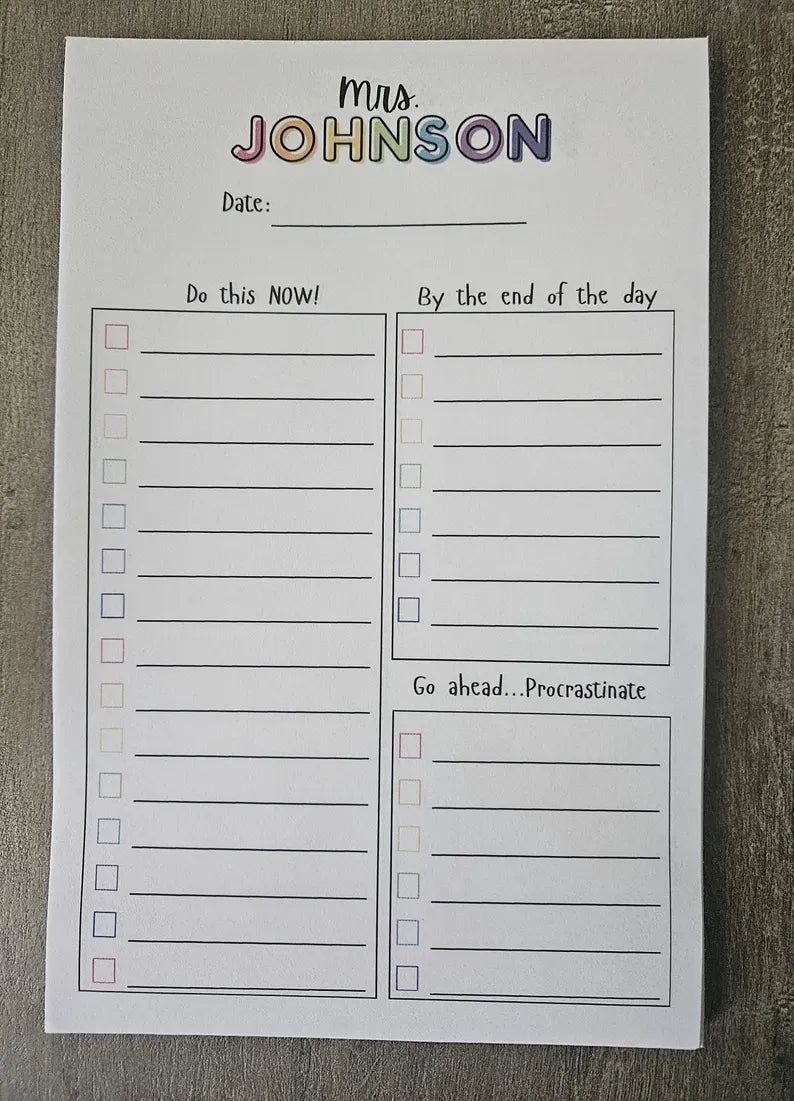 Mrs.
JOHNSON
Date:
Do this NOW!
By the end of the day
Go ahead...Procrastinate